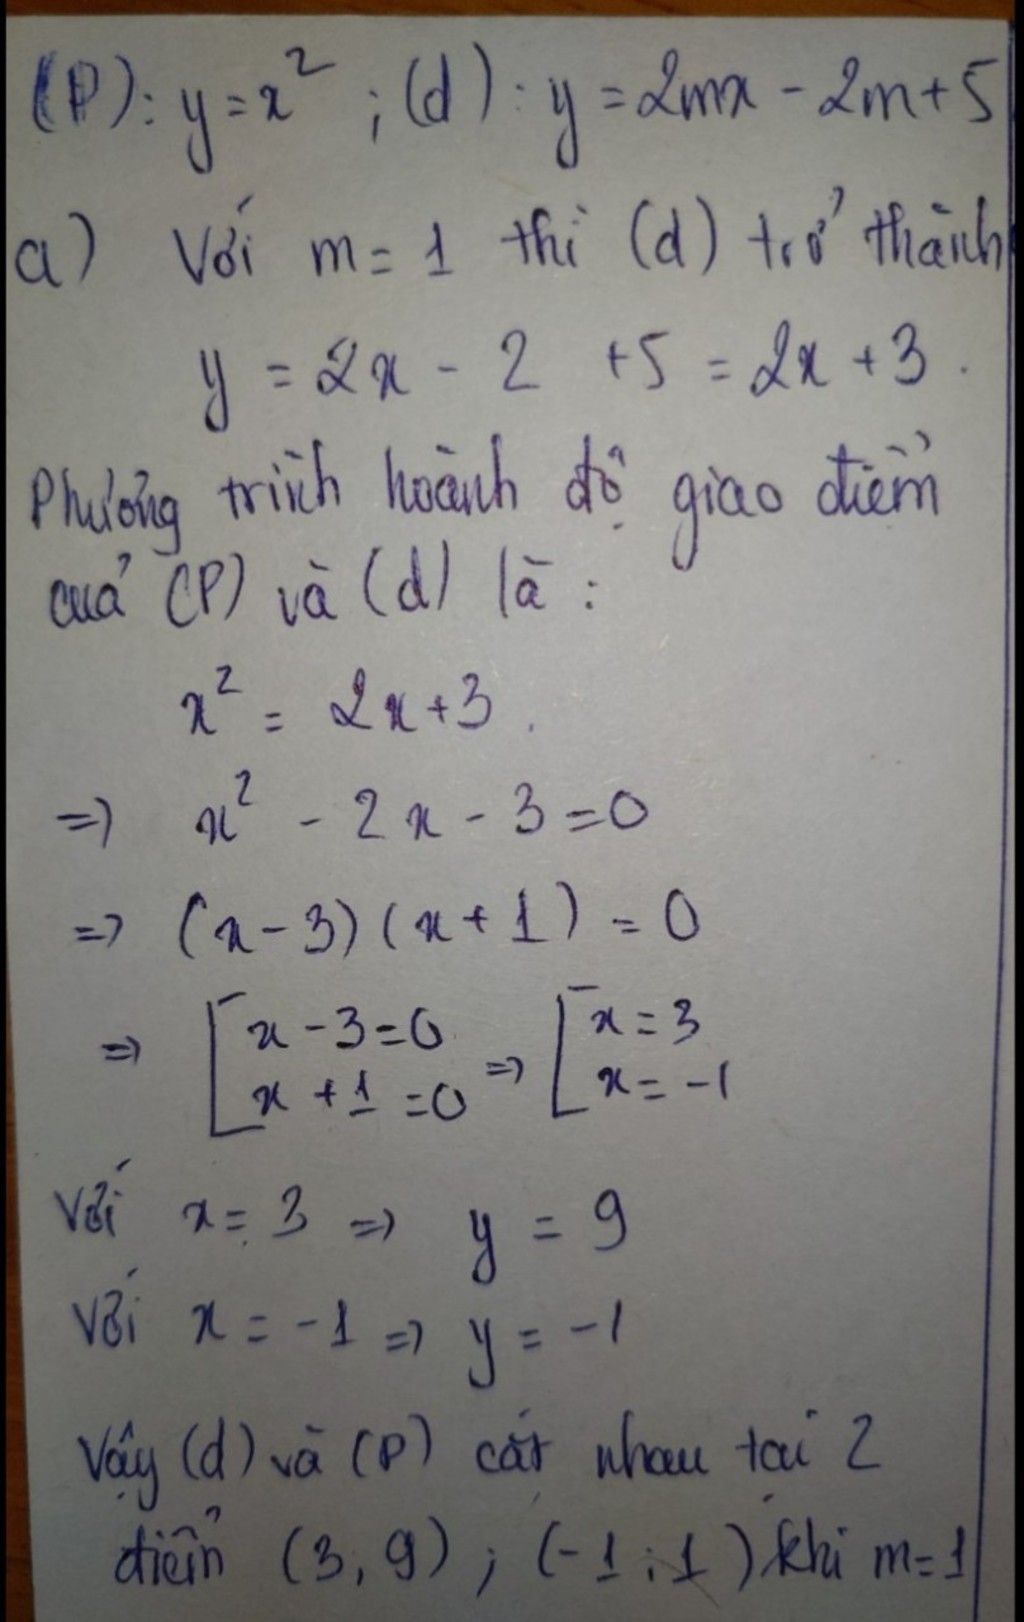 (P): y = x² ; (d): y = 2mx - 2m + 5
a) Với m = 1 thì (d) trở thành
y = 2x - 2 + 5 = 2x + 3.
Phương trình hoành độ giao điểm
của (P) và (d) là :
x² = 2x + 3.
=> x² - 2x - 3 = 0
=> (x - 3)(x + 1) = 0
=> [ x - 3 = 0 => [ x = 3
x + 1 = 0 x = -1
Với x = 3 => y = 9
Với x = -1 => y = -1
Vậy (d) và (P) cắt nhau tại 2
điểm (3, 9) ; (-1 ; 1) khi m = 1